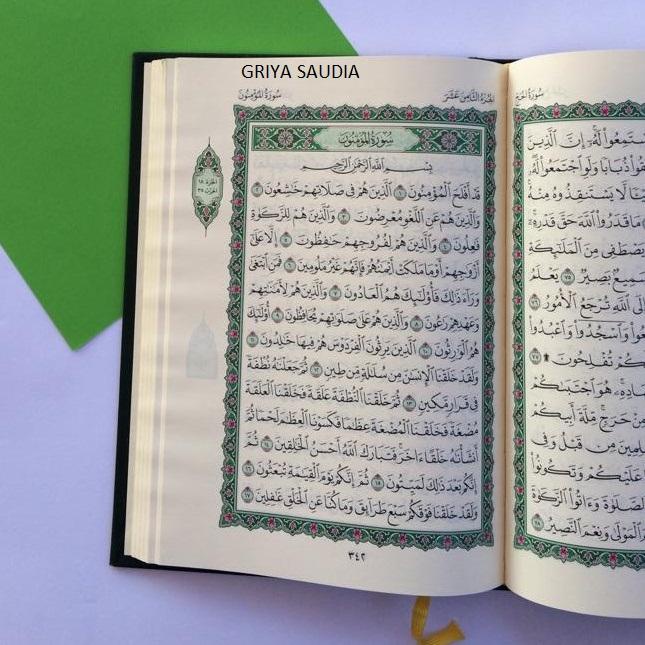 GRIYA SAUDIA
سُورَةُ الحَجّ
سْتَمِعُوا۟ لَهُۥٓ إِنَّ ٱلَّذِينَ
قُوا۟ ذُبَابًا وَلَوِ ٱجْتَمَعُوا۟ لَهُۥ
يْـًٔا لَّا يَسْتَنقِذُوهُ مِنْهُ
مَا قَدَرُوا۟ ٱللَّهَ حَقَّ قَدْرِهِۦٓ
يَصْطَفِى مِنَ ٱلْمَلَٰٓئِكَةِ
سَمِيعٌۢ بَصِيرٌ ٧٥ يَعْلَمُ
إِلَى ٱللَّهِ تُرْجَعُ ٱلْأُمُورُ ٧٦
عُوا۟ وَٱسْجُدُوا۟ وَٱعْبُدُوا۟
كُمْ تُفْلِحُونَ ۩ ٧٧
ادِهِۦ هُوَ ٱجْتَبَىٰكُمْ
مِنْ حَرَجٍ مِّلَّةَ أَبِيكُمْ
لِمِينَ مِن قَبْلُ وَفِى
عَلَيْكُمْ وَتَكُونُوا۟
ٱلصَّلَوٰةَ وَءَاتُوا۟ ٱلزَّكَوٰةَ
ٱلْمَوْلَىٰ وَنِعْمَ ٱلنَّصِيرُ ٧٨
الجُزءُ الثَّامِنَ عَشَرَ
سُورَةُ المُؤْمِنُونَ
سُورَةُ المُؤْمِنُونَ
الجزء ١٨
الحزب ٣٥
بِسْمِ ٱللَّهِ ٱلرَّحْمَٰنِ ٱلرَّحِيمِ
قَدْ أَفْلَحَ ٱلْمُؤْمِنُونَ ١ ٱلَّذِينَ هُمْ فِى صَلَاتِهِمْ خَٰشِعُونَ ٢
وَٱلَّذِينَ هُمْ عَنِ ٱللَّغْوِ مُعْرِضُونَ ٣ وَٱلَّذِينَ هُمْ لِلزَّكَوٰةِ
فَٰعِلُونَ ٤ وَٱلَّذِينَ هُمْ لِفُرُوجِهِمْ حَٰفِظُونَ ٥ إِلَّا عَلَىٰٓ
أَزْوَٰجِهِمْ أَوْ مَا مَلَكَتْ أَيْمَٰنُهُمْ فَإِنَّهُمْ غَيْرُ مَلُومِينَ ٦ فَمَنِ ٱبْتَغَىٰ
وَرَآءَ ذَٰلِكَ فَأُو۟لَٰٓئِكَ هُمُ ٱلْعَادُونَ ٧ وَٱلَّذِينَ هُمْ لِأَمَٰنَٰتِهِمْ
وَعَهْدِهِمْ رَٰعُونَ ٨ وَٱلَّذِينَ هُمْ عَلَىٰ صَلَوَٰتِهِمْ يُحَافِظُونَ ٩ أُو۟لَٰٓئِكَ
هُمُ ٱلْوَٰرِثُونَ ١٠ ٱلَّذِينَ يَرِثُونَ ٱلْفِرْدَوْسَ هُمْ فِيهَا خَٰلِدُونَ ١١
وَلَقَدْ خَلَقْنَا ٱلْإِنسَٰنَ مِن سُلَٰلَةٍ مِّن طِينٍ ١٢ ثُمَّ جَعَلْنَٰهُ نُطْفَةً
فِى قَرَارٍ مَّكِينٍ ١٣ ثُمَّ خَلَقْنَا ٱلنُّطْفَةَ عَلَقَةً فَخَلَقْنَا ٱلْعَلَقَةَ
مُضْغَةً فَخَلَقْنَا ٱلْمُضْغَةَ عِظَٰمًا فَكَسَوْنَا ٱلْعِظَٰمَ لَحْمًا ثُمَّ
أَنشَأْنَٰهُ خَلْقًا ءَاخَرَ فَتَبَارَكَ ٱللَّهُ أَحْسَنُ ٱلْخَٰلِقِينَ ١٤ ثُمَّ
إِنَّكُم بَعْدَ ذَٰلِكَ لَمَيِّتُونَ ١٥ ثُمَّ إِنَّكُمْ يَوْمَ ٱلْقِيَٰمَةِ تُبْعَثُونَ ١٦
وَلَقَدْ خَلَقْنَا فَوْقَكُمْ سَبْعَ طَرَآئِقَ وَمَا كُنَّا عَنِ ٱلْخَلْقِ غَٰفِلِينَ ١٧
٣٤٢